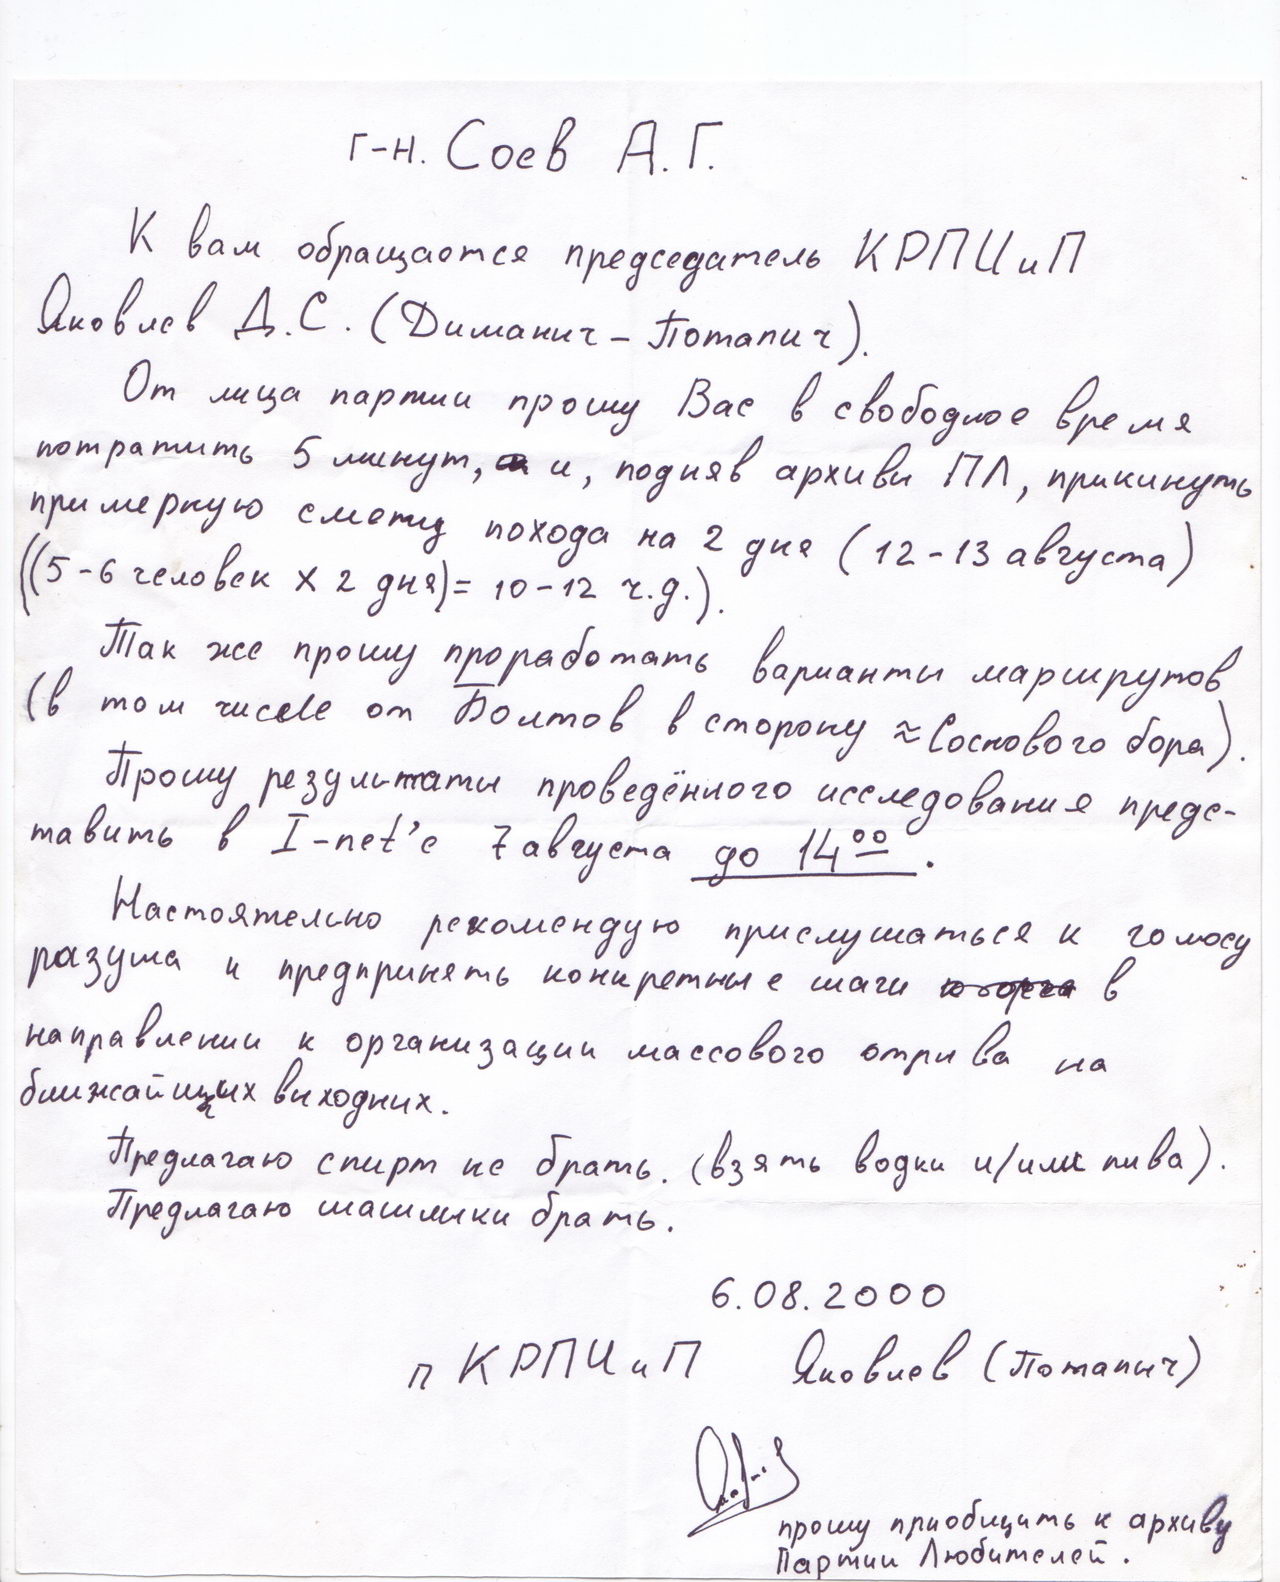 г-н. Соев А.Г.
К вам обращается председатель КРПЦиП
Яковлев Д.С. (Диманич-Потапич).
От лица партии прошу Вас в свободное время
потратить 5 минут, и, подняв архивы ПЛ, прикинуть
примерную смету похода на 2 дня (12-13 августа)
((5-6 человек х 2 дня)= 10-12 ч.д.).
Так же прошу проработать варианты маршрутов
(в том числе от Болтов в сторону ≈ Соснового бора).
Прошу результаты проведённого исследования предс-
тавить в I-net'е 7 августа до 14⁰⁰.
Настоятельно рекомендую прислушаться к голосу
разума и предпринять конкретные шаги в
направлении к организации массового отрыва на
ближайших выходных.
Предлагаю спирт не брать. (взять водки и/или пива).
Предлагаю шашлыки брать.
6.08.2000
п КРПЦиП Яковлев (Потапыч)
прошу приобщить к архиву
Партии Любителей.